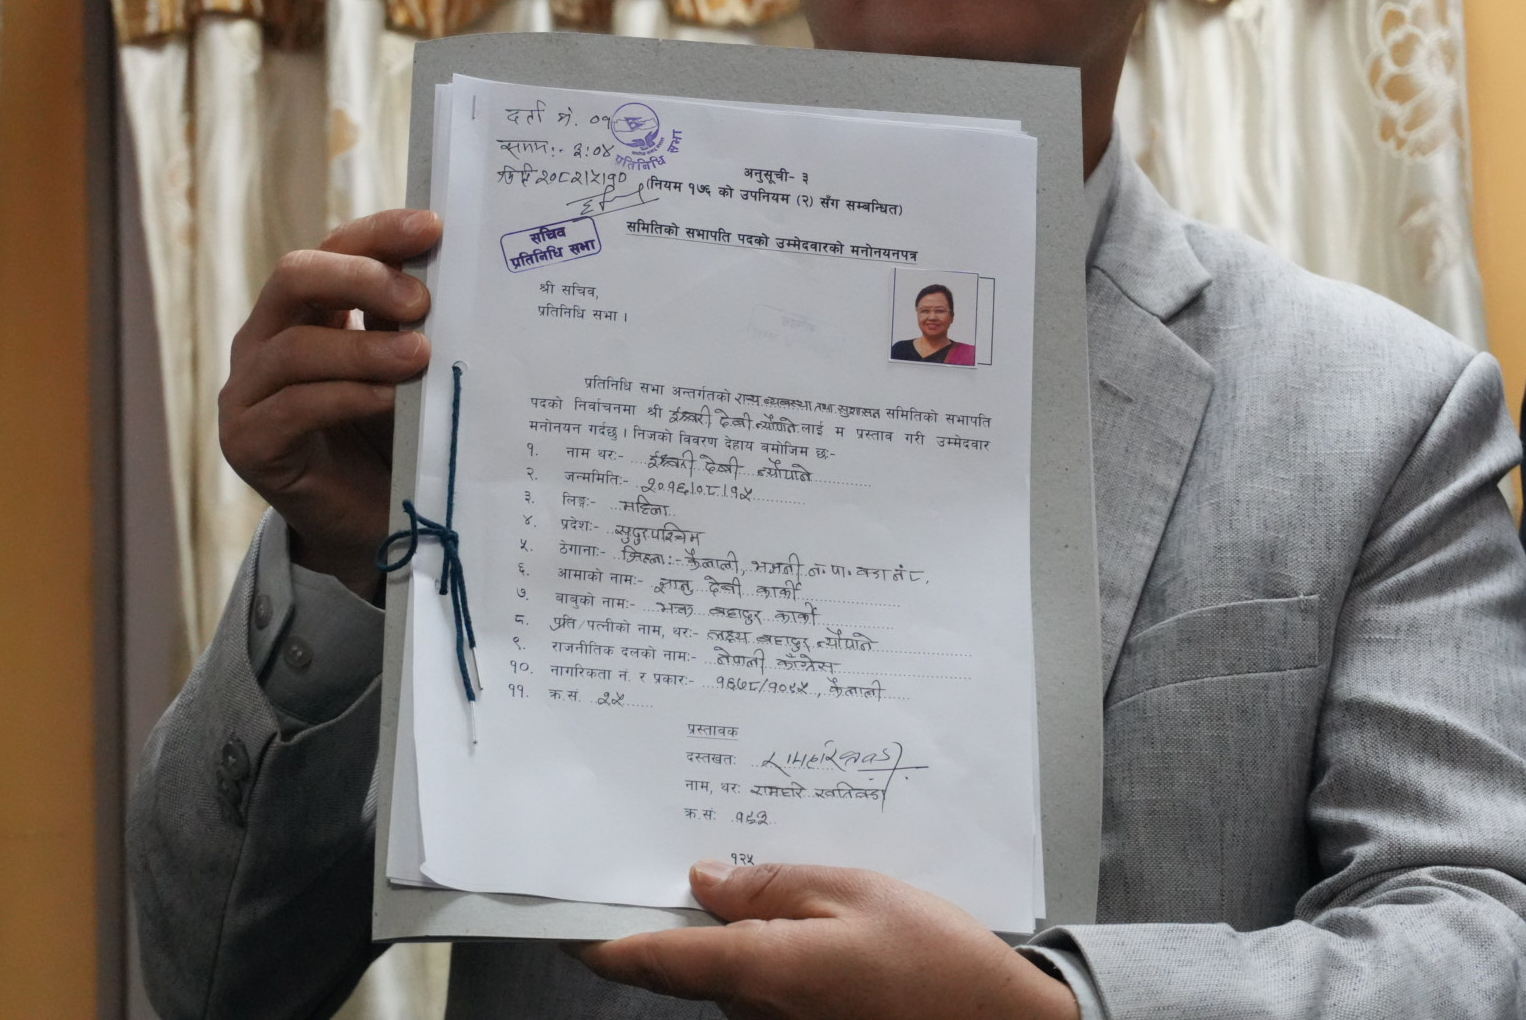 दर्ता नं. ०१
समय:- ३:०४
मिति २०८२/५/१०
प्रतिनिधि सभा
सचिव
प्रतिनिधि सभा
अनुसूची- ३
(नियम १७६ को उपनियम (२) सँग सम्बन्धित)
समितिको सभापति पदको उम्मेदवारको मनोनयनपत्र
श्री सचिव,
प्रतिनिधि सभा ।
प्रतिनिधि सभा अन्तर्गतको राज्य व्यवस्था तथा सुशासन समितिको सभापति
पदको निर्वाचनमा श्री ईश्वरी देवी न्यौपाने लाई म प्रस्ताव गरी उम्मेदवार
मनोनयन गर्दछु । निजको विवरण देहाय बमोजिम छ:-
१. नाम थर:- ईश्वरी देवी न्यौपाने
२. जन्ममिति:- २०१६।०८।१५
३. लिङ्ग:- महिला
४. प्रदेश:- सुदुरपश्चिम
५. ठेगाना:- जिल्ला:- कैलाली, भजनी न.पा. वडा नं ८,
६. आमाको नाम:- देवी कार्की
७. बाबुको नाम:- भक्त बहादुर कार्की
८. पति/पत्नीको नाम, थर:- बहादुर न्यौपाने
९. राजनीतिक दलको नाम:- नेपाली काँग्रेस
१०. नागरिकता नं. र प्रकार:- १६७८/१०९५, कैलाली
११. क्र.सं. २५
प्रस्तावक
दस्तखत:
नाम, थर: रामहरि खतिवडा
क्र.सं: १९३
१२५